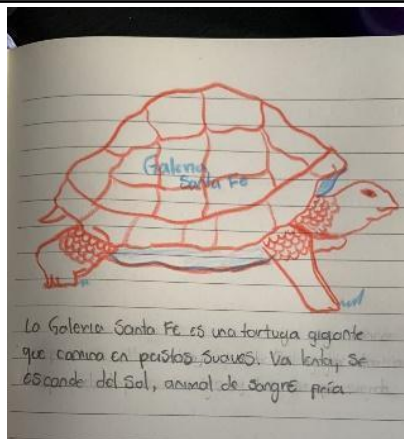 Galería
Santa Fe
La Galería Santa Fe es una tortuga gigante
que camina en pastos suaves. Va lenta, se
esconde del sol, animal de sangre fría